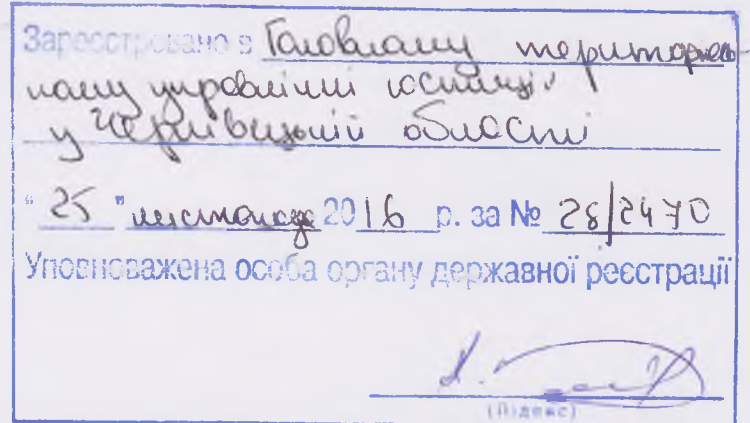 Зареєстровано в Головному територіаль-
ному управлінні юстиції
у Чернівецькій області
"25" листопада 2016 р. за № 28/2470
Уповноважена особа органу державної реєстрації
(Підпис)